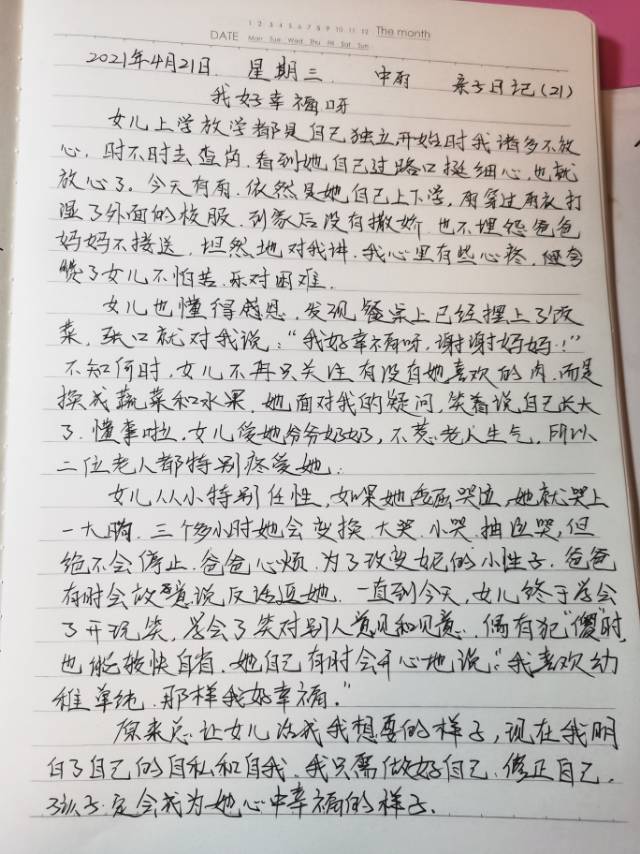 1 2 3 4 5 6 7 8 9 10 11 12 The month
DATE Mon Tue Wed Thu Fri Sat Sun
2021年4月21日. 星期三. 中雨 亲子日记(21)
我好幸福呀
女儿上学放学都是自己独立,开始时我诸多不放
心,时不时去查岗,看到她自己过路口挺细心,也就
放心了。今天有雨,依然是她自己上下学,雨穿过雨衣打
湿了外面的校服,到家后没有撒娇,也不埋怨爸爸
妈妈不接送,坦然地对我讲,我心里有些心疼,
了女儿不怕苦,乐对困难.
女儿也懂得感恩,发现餐桌上已经摆上了饭
菜,张口就对我说:“我好幸福呀,谢谢妈妈!”
不知何时,女儿不再只关注有没有她喜欢的肉,而是
换成蔬菜和水果,她面对我的疑问,笑着说自己长大
了,懂事啦,女儿爱她爷爷奶奶,不惹老人生气,所以
二位老人都特别疼爱她.
女儿从小特别任性,如果她委屈哭泣,她就哭上
一大晌,三个多小时她会变换,大哭,小哭,抽泣哭,但
绝不会停止,爸爸心烦,为了改变妮的小性子,爸爸
有时会故意说反话逗她.一直到今天,女儿终于学会
了开玩笑,学会了笑对别人意见和见意,偶有犯“傻”时,
也能很快自省.她自己有时会开心地说“我喜欢幼
稚单纯,那样我好幸福。”
原来总让女儿活成我想要的样子,现在我明
白了自己的自私和自我.我只需做好自己,修正自己,
孩子定会成为她心中幸福的样子.